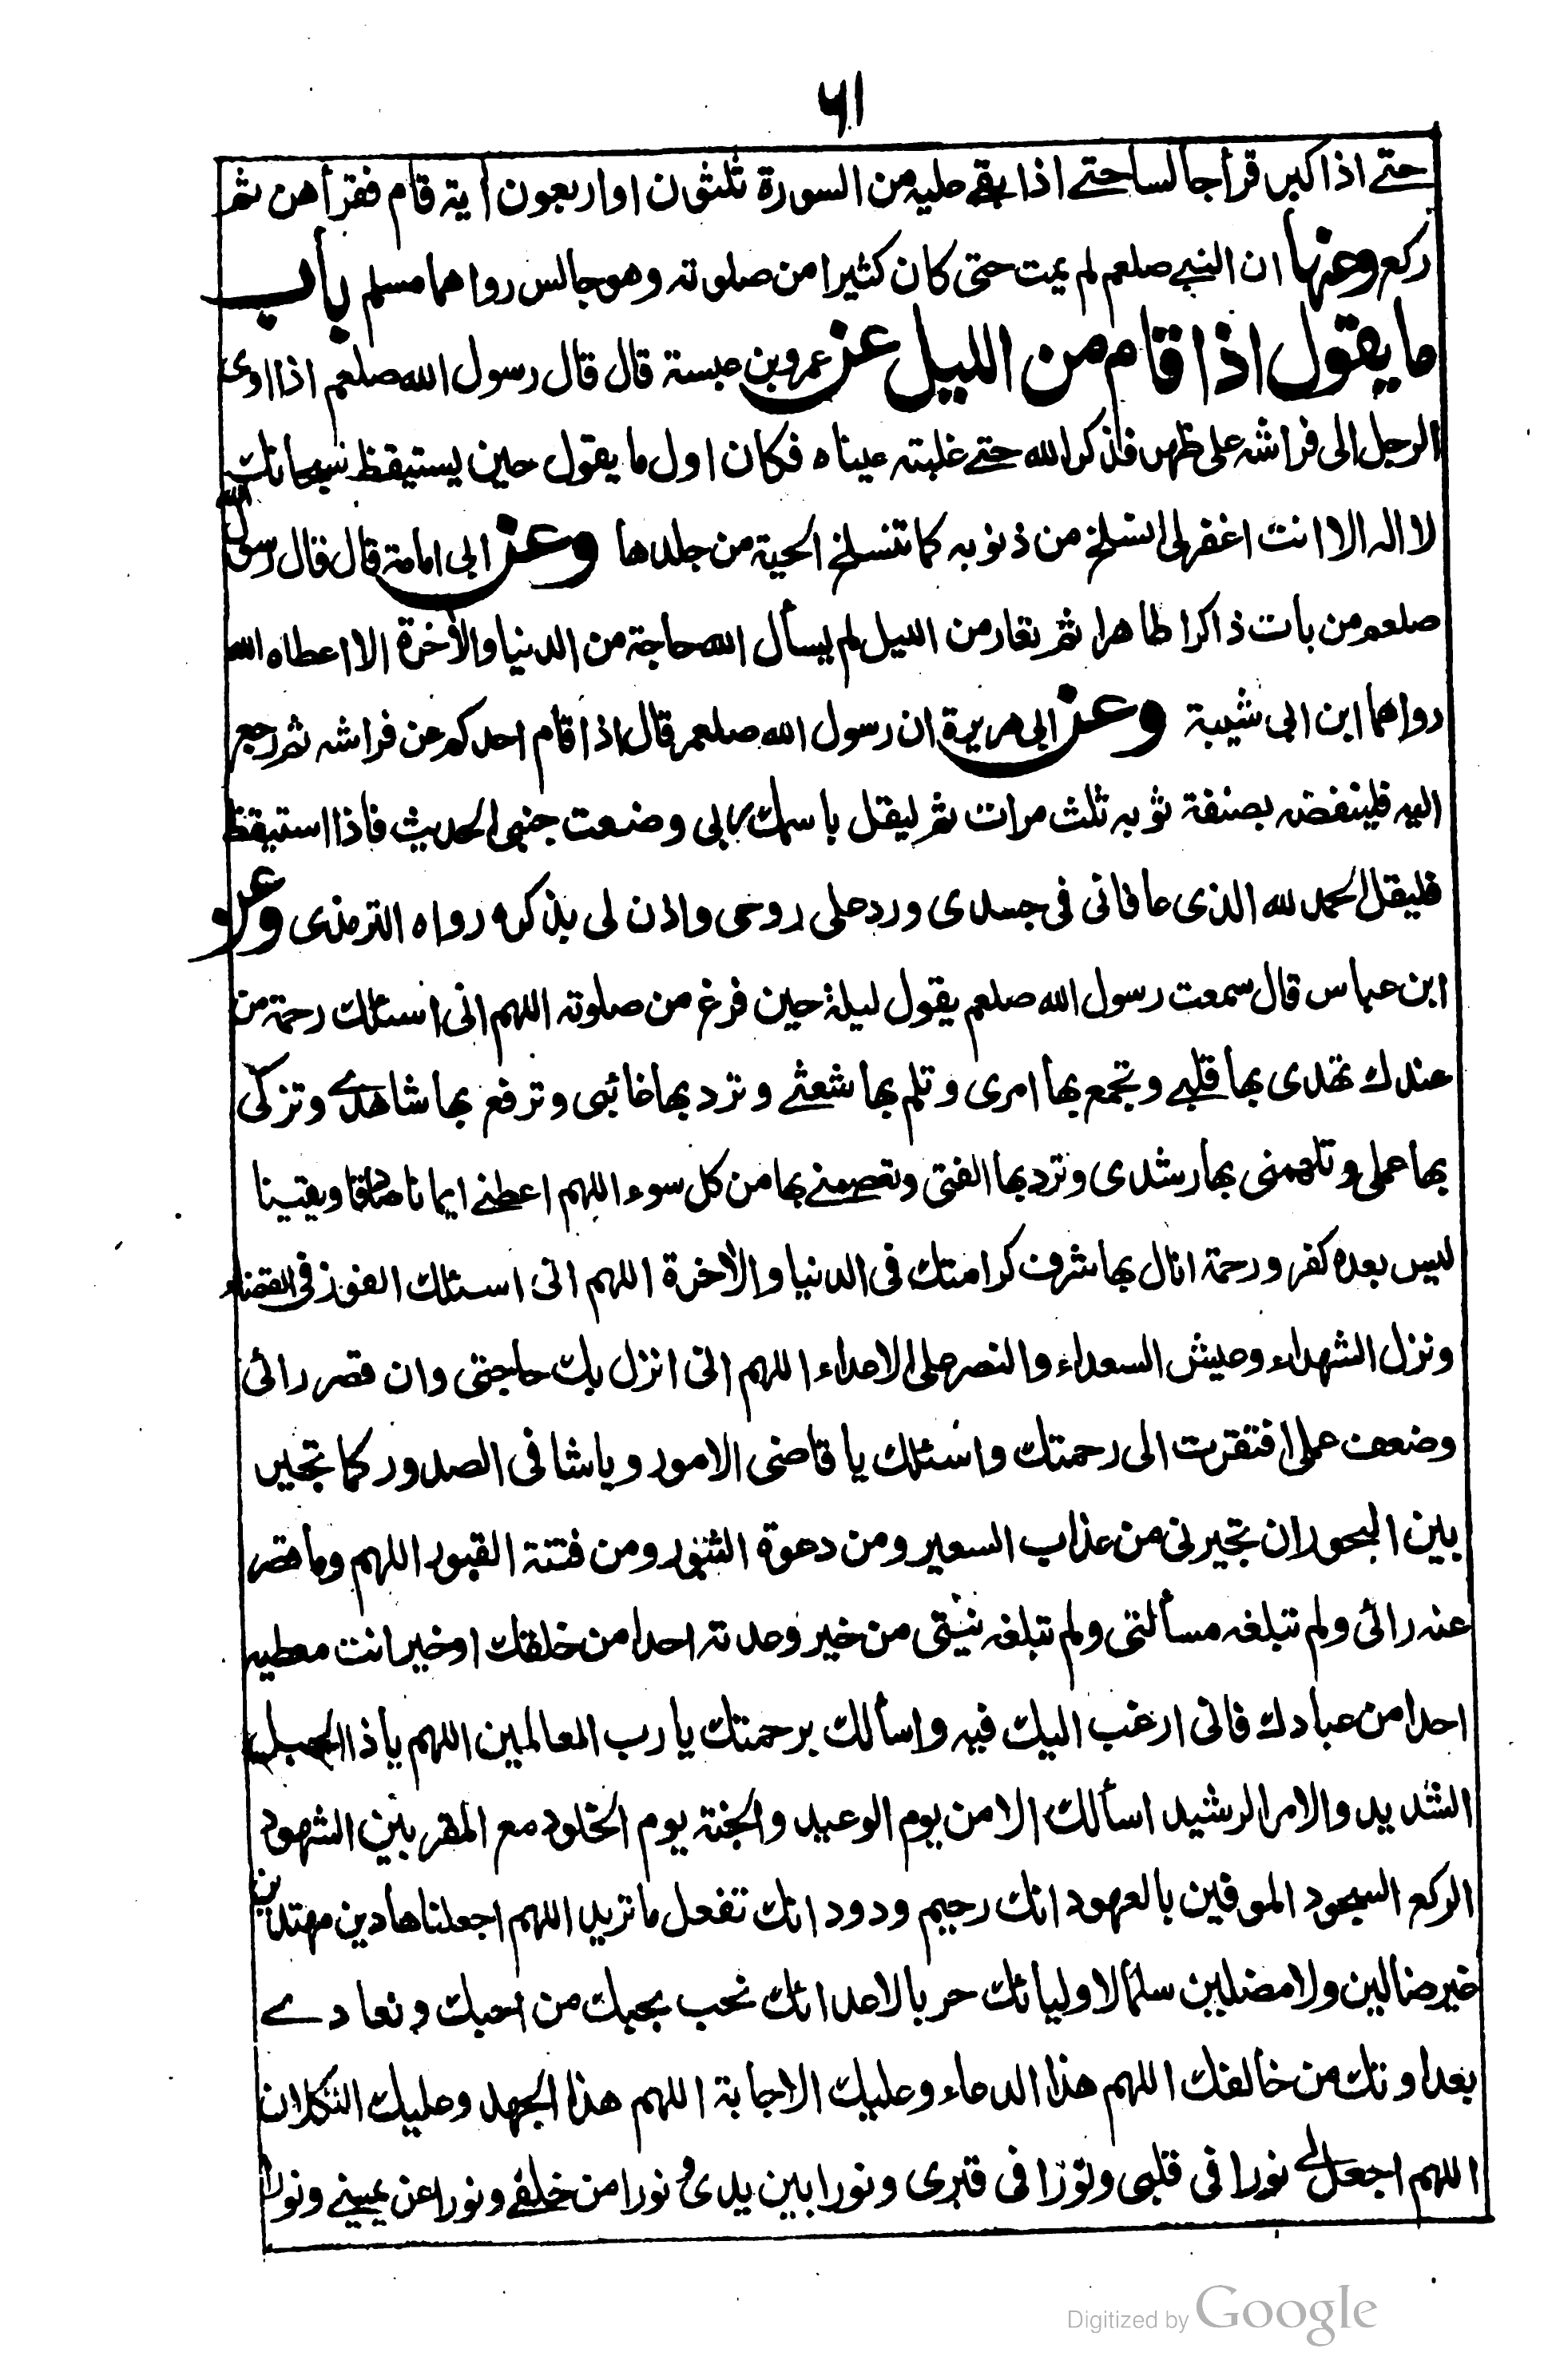 ٦١
حتے اذا كبر قرأ جالسا حتے اذا بقے عليه من السورة ثلثون او اربعون اية قام فقرأهن ثم
ركع وعنها ان النبے صلعم لم يمت حتى كان كثيرا من صلوته وهو جالس رواهما مسلم باب
ما يقول اذا قام من الليل عن عمرو بن عبسة قال قال رسول الله صلعم اذا اوى
الرجل الى فراشه على طهر فذكر الله حتے غلبته عيناه فكان اول ما يقول حين يستيقظ سبحانك
لا اله الا انت اغفر لى انسلخ من ذنوبه كما تنسلخ الحية من جلدها وعن ابى امامة قال قال رسول الله
صلعم من بات ذاكرا طاهرا ثم تعار من الليل لم يسأل الله حاجة من الدنيا والأخرة الا اعطاه الله
رواهما ابن ابى شيبة وعن ابى هريرة ان رسول الله صلعم قال اذا قام احدكم عن فراشه ثم رجع
اليه فلينفضه بصنفة ثوبه ثلث مرات ثم ليقل باسمك ربى وضعت جنبى الحديث فاذا استيقظ
فليقل الحمد لله الذى عافانى فى جسدى ورد على روحى واذن لى بذكره رواه الترمذى وعن
ابن عباس قال سمعت رسول الله صلعم يقول ليلة حين فرغ من صلوته اللهم انى اسئلك رحمة من
عندك تهدى بها قلبے وتجمع بها امرى وتلم بها شعثے وترد بها غائبى وترفع بها شاهدے وتزكى
بها عملى وتلهمنى بها رشدى وترد بها الفتى وتعصمنے بها من كل سوء اللهم اعطنے ايمانا صادقا ويقينا
ليس بعده كفر ورحمة انال بها شرف كرامتك فى الدنيا والأخرة اللهم انى اسئلك الفوز فى القضاء
ونزل الشهداء وعيش السعداء والنصر على الاعداء اللهم انى انزل بك حاجتى وان قصر رائى
وضعف عملى افتقرت الى رحمتك واسئلك يا قاضى الامور ويا شافى الصدور كما تجير
بين البحور ان تجيرنى من عذاب السعير ومن دعوة الثبور ومن فتنة القبور اللهم وما قصر
عنه رائى ولم تبلغه مسألتى ولم تبلغه نيتى من خير وعدته احدا من خلقك او خير انت معطيه
احدا من عبادك فانى ارغب اليك فيه واسألك برحمتك يا رب العالمين اللهم يا ذا الحبل
الشديد والامر الرشيد اسألك الامن يوم الوعيد والجنة يوم الخلود مع المقربين الشهود
الركع السجود الموفين بالعهود انك رحيم ودود انك تفعل ما تريد اللهم اجعلنا هادين مهتدين
غير ضالين ولا مضلين سلما لاوليائك حربا لاعدائك نحب بحبك من احبك ونعادے
بعداوتك من خالفك اللهم هذا الدعاء وعليك الاجابة اللهم هذا الجهد وعليك التكلان
اللهم اجعل لے نورا فى قلبى ونورا فى قبرى ونورا بين يدى ونورا من خلفے ونورا عن يمينے ونورا
Digitized by Google